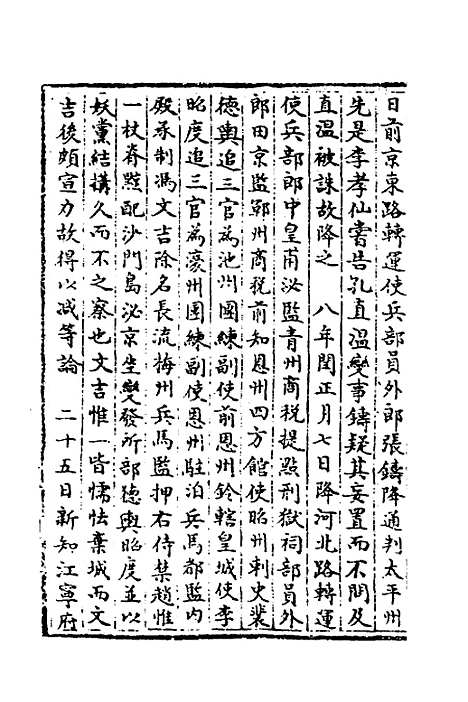 日前京東路轉運使兵部員外郎張鑄降通判太平州
先是李孝仙嘗告孔直溫變事鑄疑其妄置而不問及
直溫被誅故降之　八年閏正月七日降河北路轉運
使兵部郎中皇甫泌監青州商稅提㸃刑獄祠部員外
郎田京監鄆州商稅前知恩州四方館使昭州刺史裴
德輿追三官為池州團練副使前恩州鈐轄皇城使李
昭度追三官為濠州團練副使恩州駐泊兵馬都監内
殿承制馮文吉除名長流梅州兵馬監押右侍禁趙惟
一杖脊黥配沙門島泌京坐變發所部德輿昭度並以
妖黨結搆久而不之察也文吉惟一皆懦怯棄城而文
吉後頗宣力故得以减等論　二十五日新知江寧府